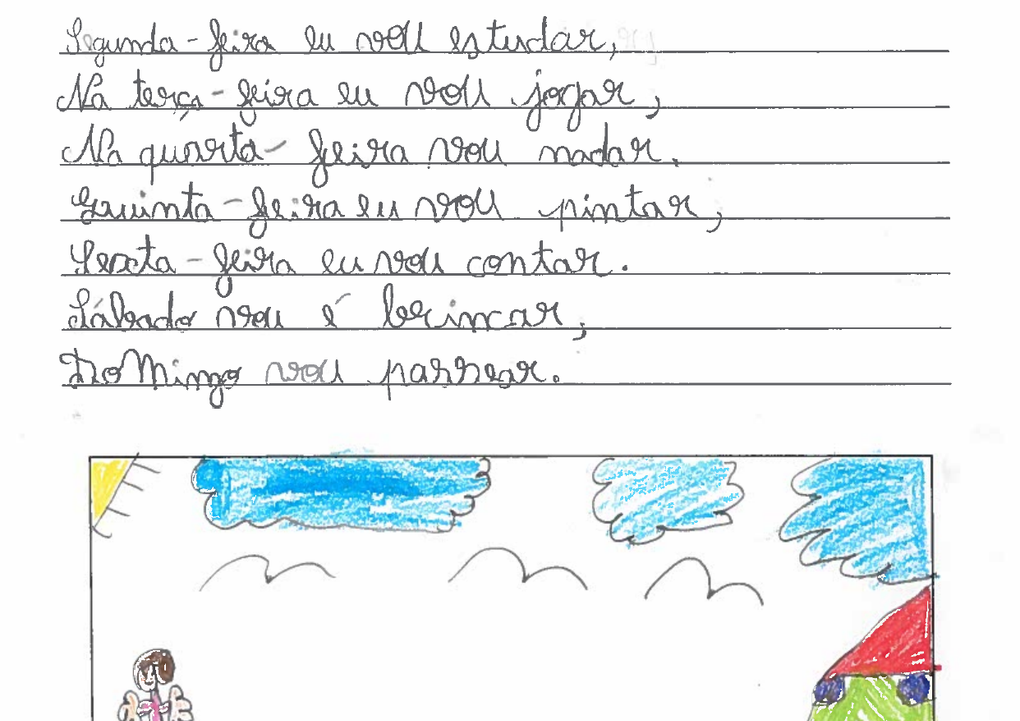 Segunda-feira eu vou estudar,
Na terça-feira eu vou jogar,
Na quarta-feira vou nadar.
Quuinta-feira eu vou pintar,
Sexta-feira eu vou contar.
Sábado vou é brincar,
DoMingo vou passear.